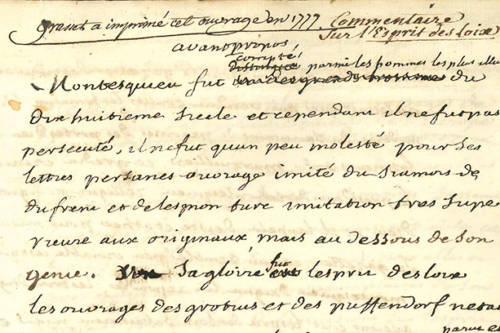 grasset a imprimé cet ouvrage en 1777. Commentaire
sur l'Esprit des Loix
avant propos
compté
Montesquieu fut distingué parmi les hommes les plus illu
un des grands hommes du
dix huitieme siecle et cependant il ne fut pas
persecuté, il ne fut qun peu molesté pour ses
lettres persanes ouvrage imité du siamois de
dufreni et de lespion turc imitation tres supe
rieure aux originaux, mais au dessous de son
genie.
Sa gloire fut est lesprit des loix
les ouvrages des grotius et des puffendorf neta